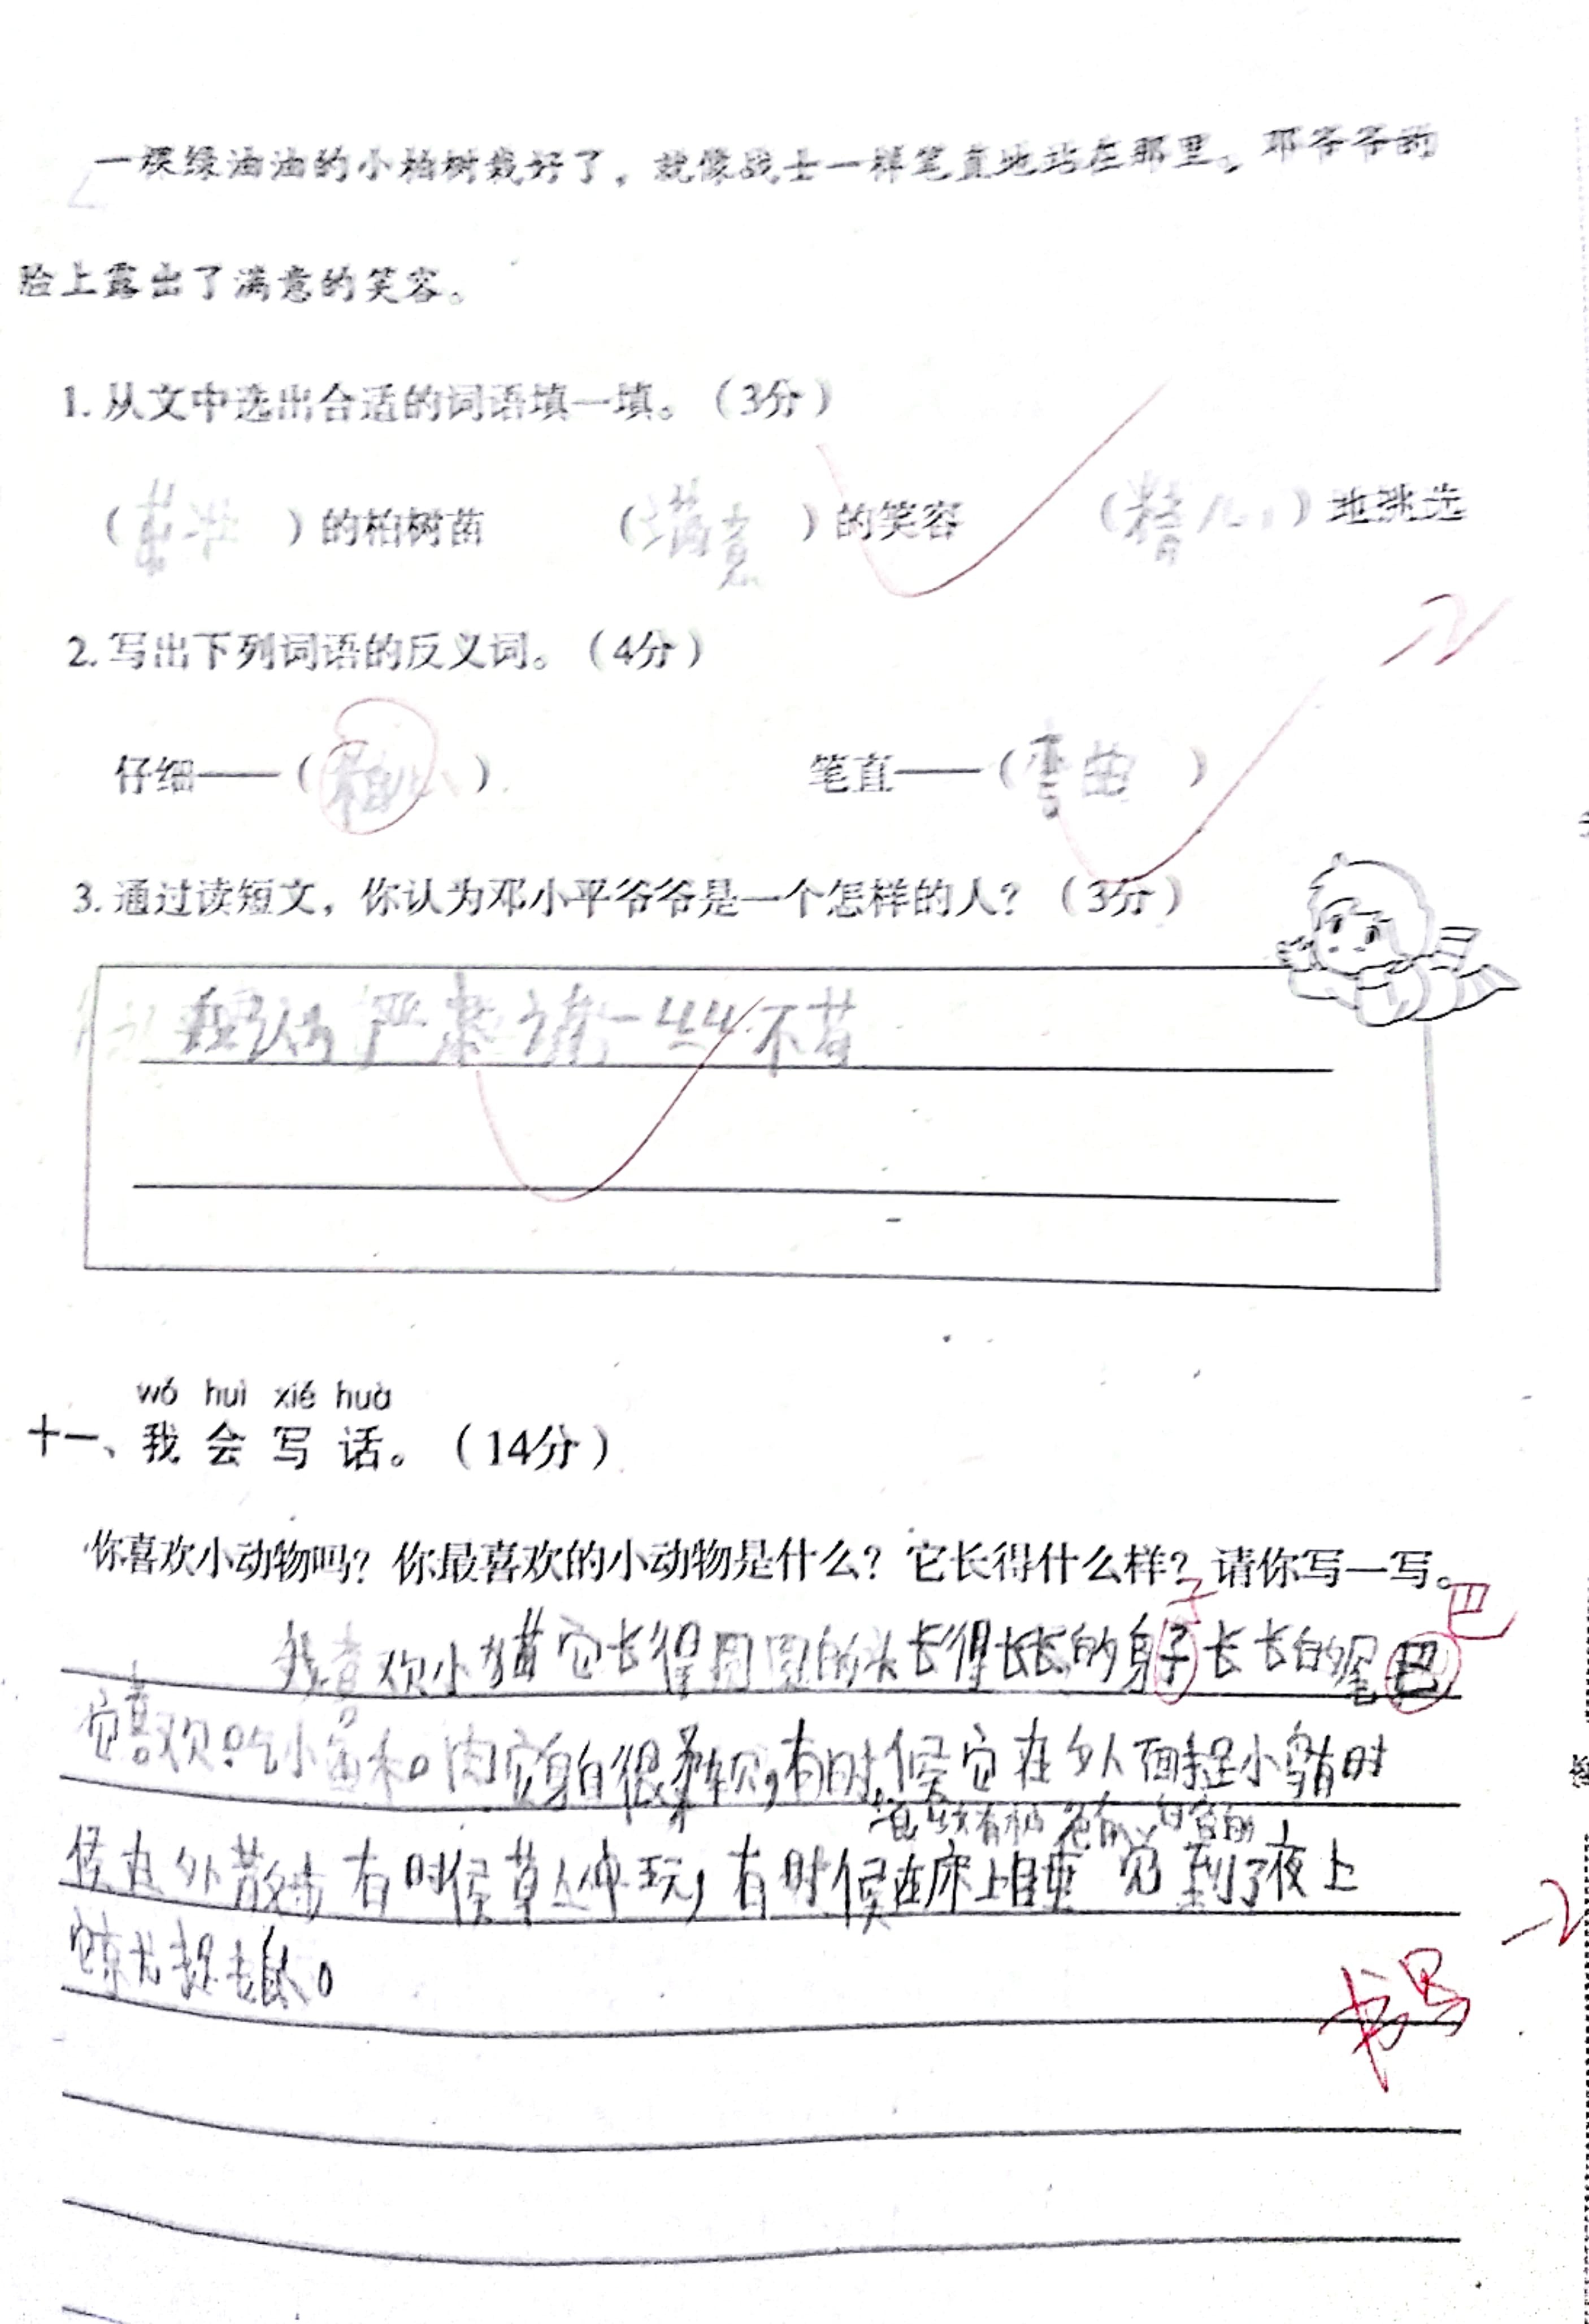 一棵绿油油的小柏树栽好了，就像战士一样笔直地站在那里。邓爷爷的
脸上露出了满意的笑容。
1. 从文中选出合适的词语填一填。（3分）
（茁壮）的柏树苗 （满意）的笑容 （精心）地挑选
2. 写出下列词语的反义词。（4分）
-2
仔细——（粗心） 笔直——（弯曲）
3. 通过读短文，你认为邓小平爷爷是一个怎样的人？（3分）
我认为严肃 一丝不苟
wǒ huì xiě huà
十一、我会写话。（14分）
你喜欢小动物吗？你最喜欢的小动物是什么？它长得什么样？请你写一写。
子 巴
我喜欢小猫它长得圆圆的头长得长长的身子长长的尾巴
它喜欢吃小鱼和肉 很柔软，有时候它在外面捉小鸟有时
色的 白色的
候在外散步有时候草丛中玩，有时候在床上睡觉到了夜上
捉老鼠。
-2
书写